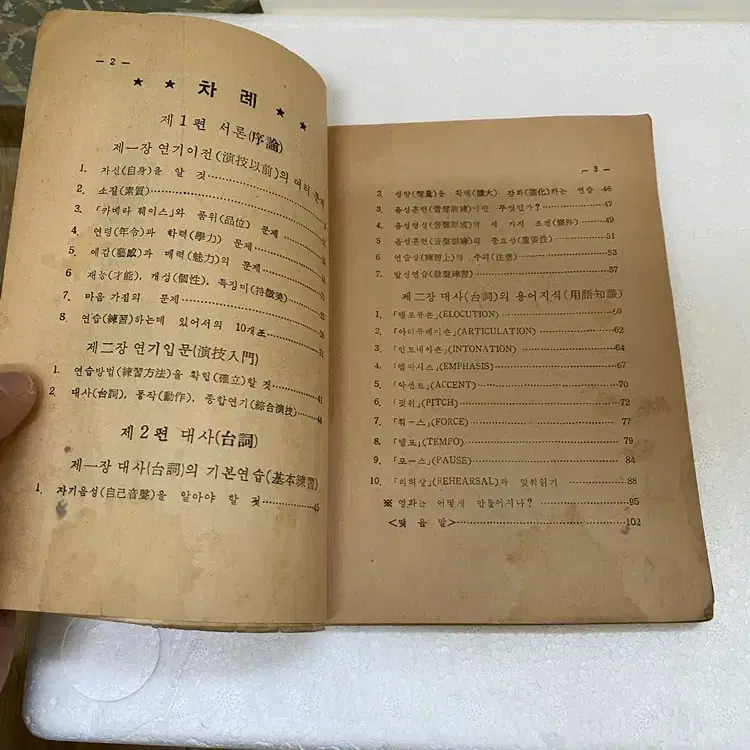 — 2 —
★ ★ 차 례 ★ ★
제 1 편 서론(序論)
제一장 연기이전(演技以前)의 여러 문제
1. 자신(自身)을 알 것
2. 소질(素質)
3. 「캬메라 훼이스」와 품위(品位) 문제
4. 연령(年令)과 학력(學力) 문제
5. 예감(藝感)과 매력(魅力)의 문제
6 재능(才能), 개성(個性), 특징미(持徵美)
7. 마음 가짐의 문제
8. 연습(練習)하는데 있어서의 10개조
제二장 연기입문(演技入門)
1. 연습방법(練習方法)을 확립(確立)할 것 41
2 대사(台詞), 동작(動作), 종합연기(綜合演技) 44
제 2 편 대사(台詞)
제一장 대사(台詞)의 기본연습(基本練習)
1. 자기음성(自己音聲)을 알아야 할 것 45
— 3 —
2 성량(聲量)을 확대(擴大) 강화(强化)하는 연습 46
3. 음성훈련(音聲訓練)이란 무엇인가? 47
4 음성형성(音聲形成)의 세 가지 조건(條件) 49
5 음성훈련(音聲訓練)의 중요성(重要性) 51
6 연습상(練習上)의 주의(注意) 53
7 발성연습(發聲練習) 57
제二장 대사(台詞)의 용어지식(用語知識)
1. 「엘로큐숀」(ELOCUTION) 60
2. 「아티큐레이숀」(ARTICULATION) 62
3. 「인토네이숀」(INTONATION) 64
4. 「엠파시스」(EMPHASIS) 67
5. 「악센트」(ACCENT) 70
6 「핏취」(PITCH) 72
7. 「훠ー스」(FORCE) 77
8. 「템포」(TEMPO) 79
9. 「포ー스」(PAUSE) 84
10. 「리허살」(REHEARSAL)과 맞취읽기 88
※ 영화는 어떻게 만들어지나? 95
<맺 음 말> 102